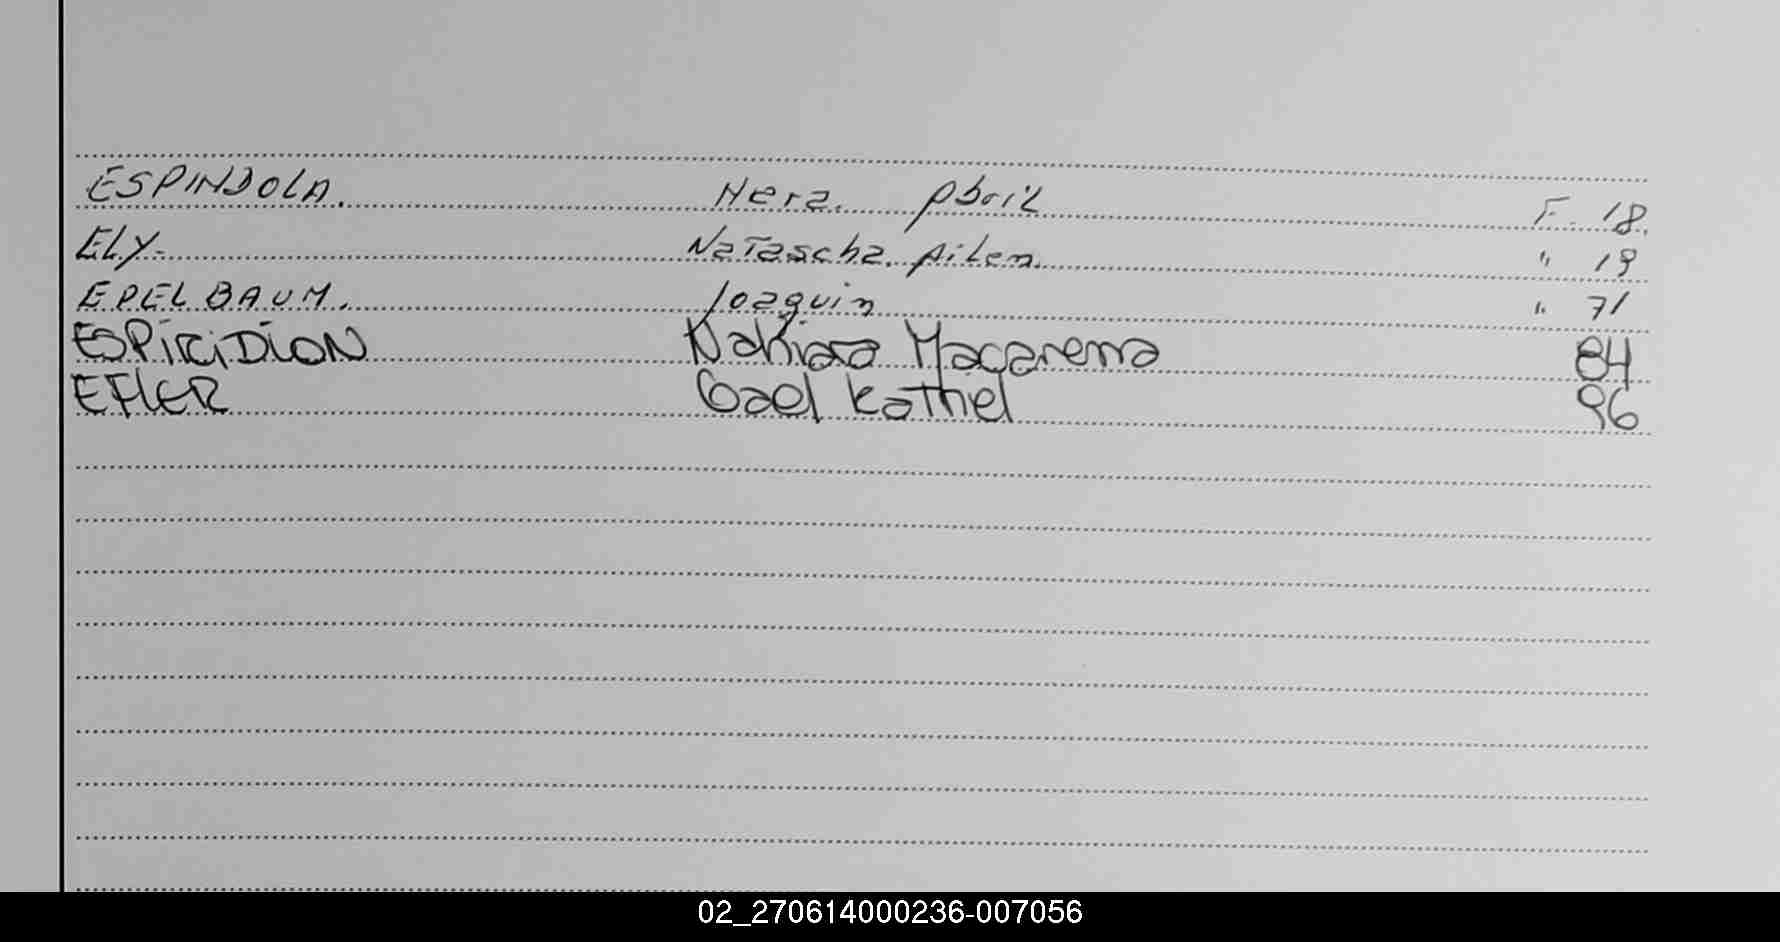 ESPINDOLA. Nera. Abril F. 18.
ELY. Natascha. Ailen. " 19
EPELBAUM. Joaquin " 71
ESPIRIDION Nahiara Macarena 84
EFLER Gael Kathiel 96
02_270614000236-007056